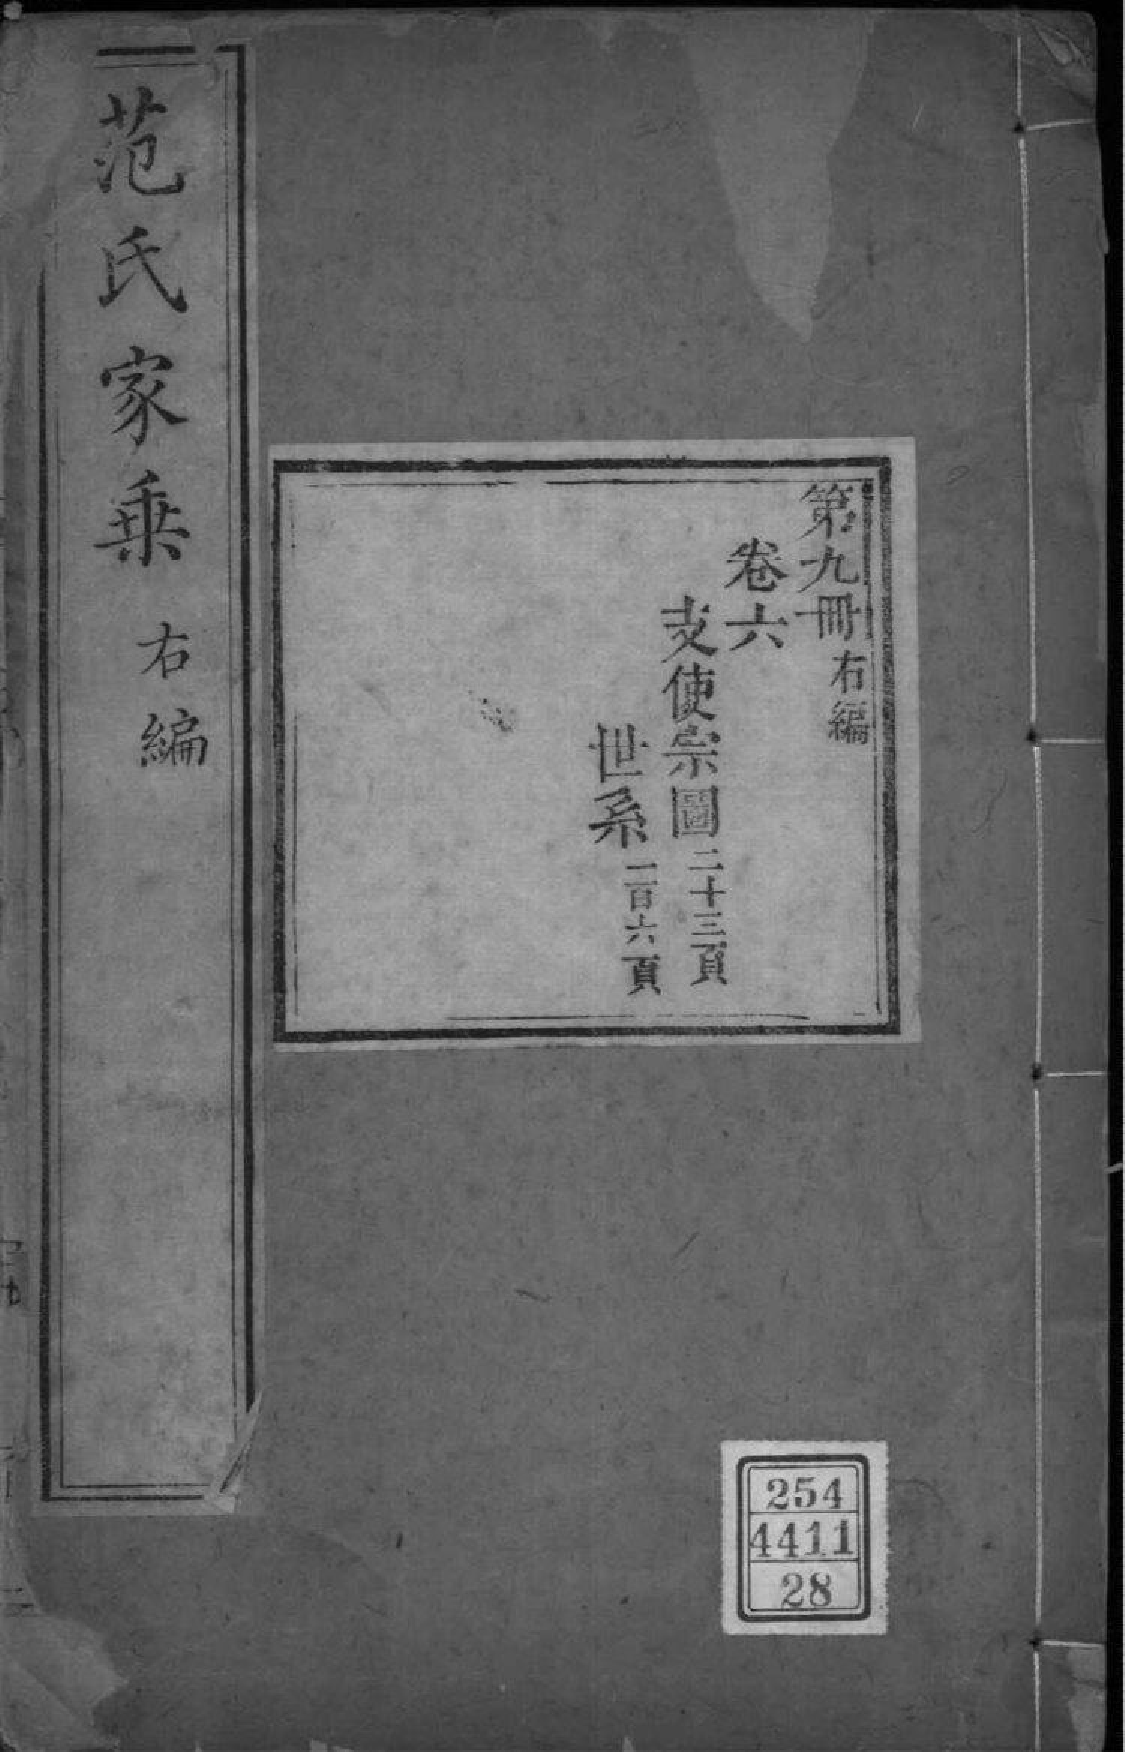 第九冊右編
卷六
支使宗圖二十三頁
世系一百六頁
范氏家乗右編
254
4411
28